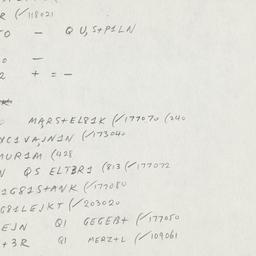 R (✓118021
TO — Q U,S+P1LN
0 —
2 + = —
MARS+EL81K (✓177070 (240
YC1VA,N1N (✓173040
MUR1M (428
N QS ELTBR1 (813 (✓177072
1G81S+ANK (✓177080
G81LEJKT (✓203020
EJN Q1 GEGEB+ (✓177050
+3R Q1 MERZ+L (✓109061